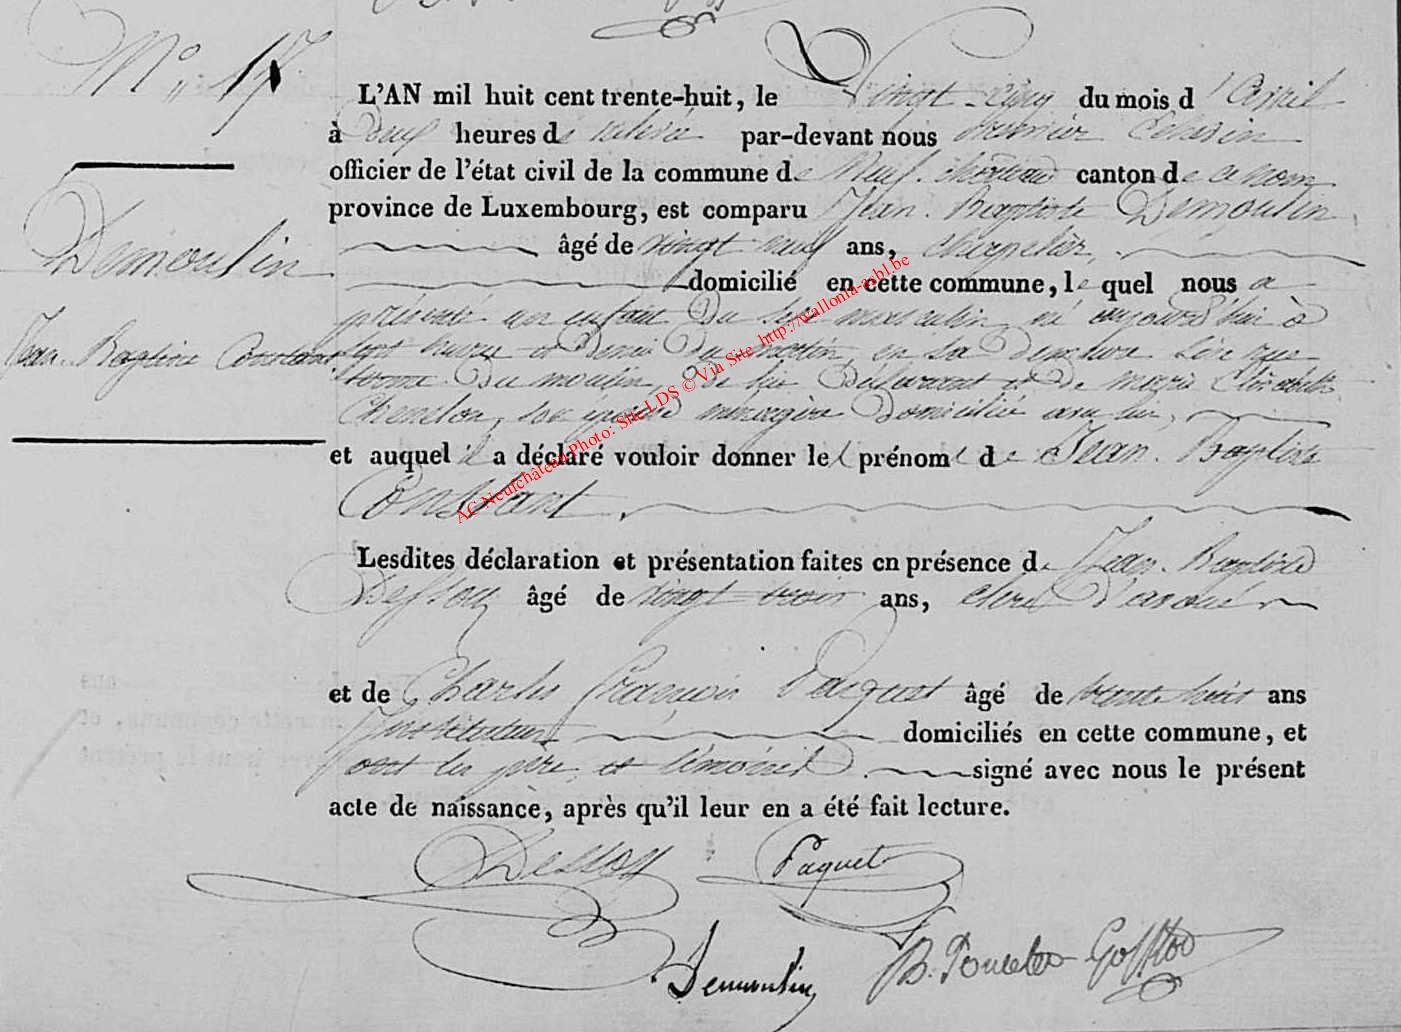 N° 17
L'AN mil huit cent trente-huit, le Vingt-cinq du mois d'Avril
à deux heures de relevée par-devant nous premier Echevin
officier de l'état civil de la commune de Neufchâteau canton de ce nom
province de Luxembourg, est comparu Jean-Baptiste Demoulin
Demoulin
âgé de vingt neuf ans, chapelier,
domicilié en cette commune, le quel nous a
présenté un enfant du sexe masculin né aujourd'hui à
Jean-Baptiste Constant
sept heures et demi du matin, en sa demeure, rue
du moulin, de lui déclarant et de marie Elisabeth
son épouse ménagère domiciliée avec lui,
et auquel il a déclaré vouloir donner les prénoms de Jean-Baptiste
Constant
Lesdites déclaration et présentation faites en présence de Jean-Baptiste
Dessoy âgé de vingt trois ans, clerc d'avoué
et de Charles François Paquet âgé de trente huit ans
Instituteur domiciliés en cette commune, et
ont les père et témoins signé avec nous le présent
acte de naissance, après qu'il leur en a été fait lecture.
Dessoy Paquet
Demoulin B. Poncelet
AC Neufchâteau Photo: Site LDS © Via Site http://wallonia-asbl.be